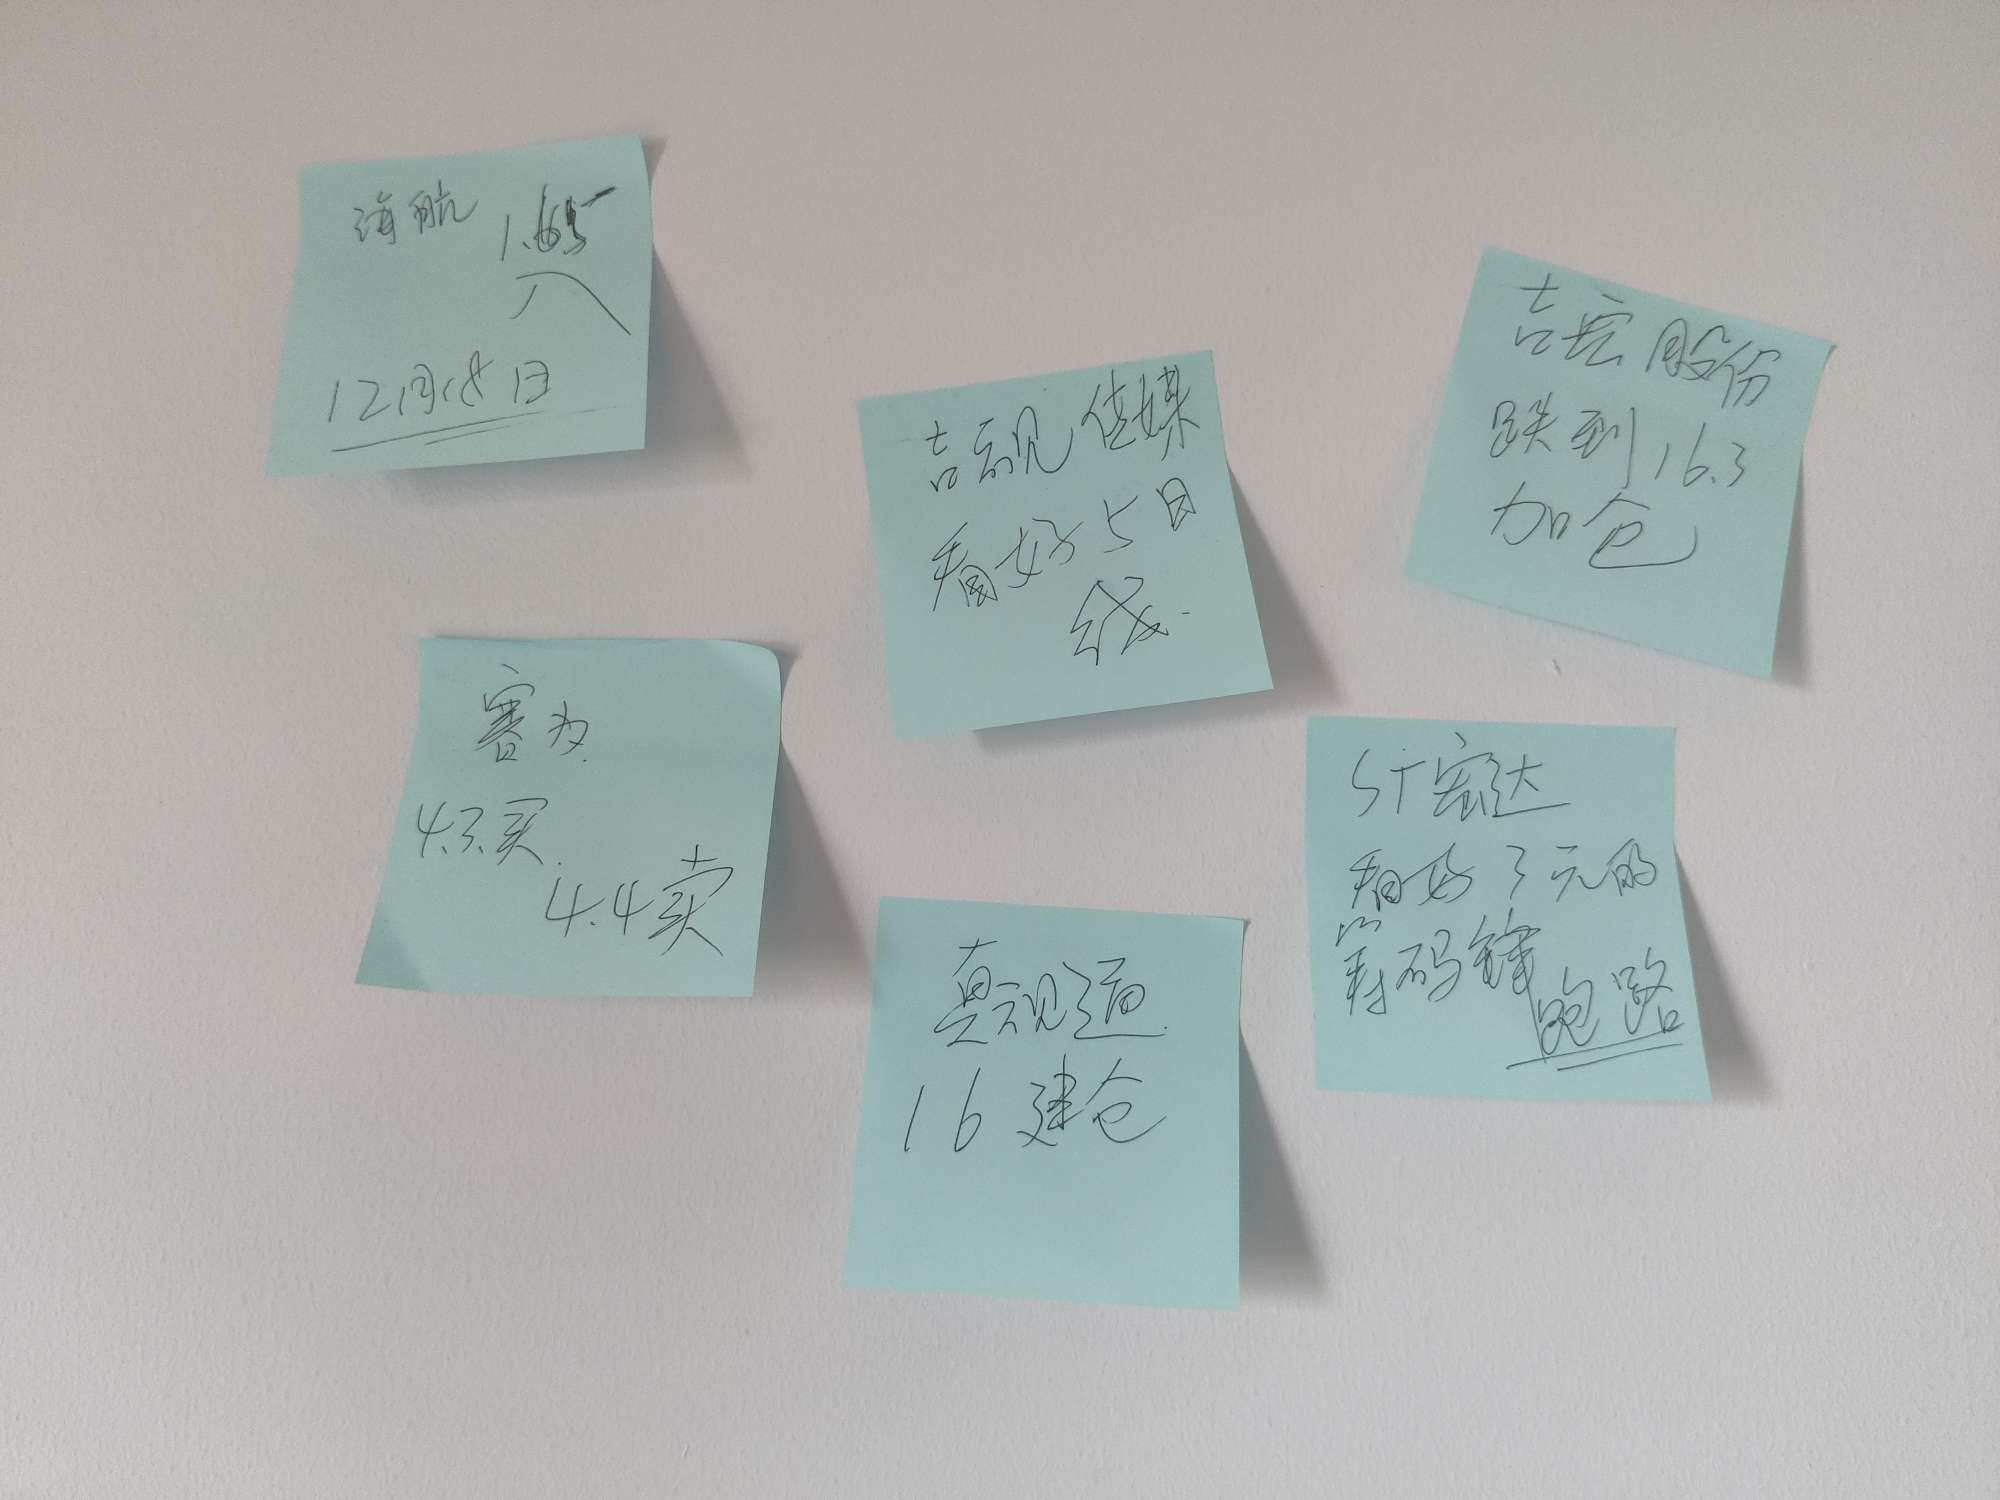 海航 1.65
入
12月18日
吉视传媒
看好5日
线.
吉宏股份
跌到16.3
加仓
赛为.
4.3.买.
4.4卖
真视通.
16建仓
ST宏达
看好3元的
筹码锋
跑路